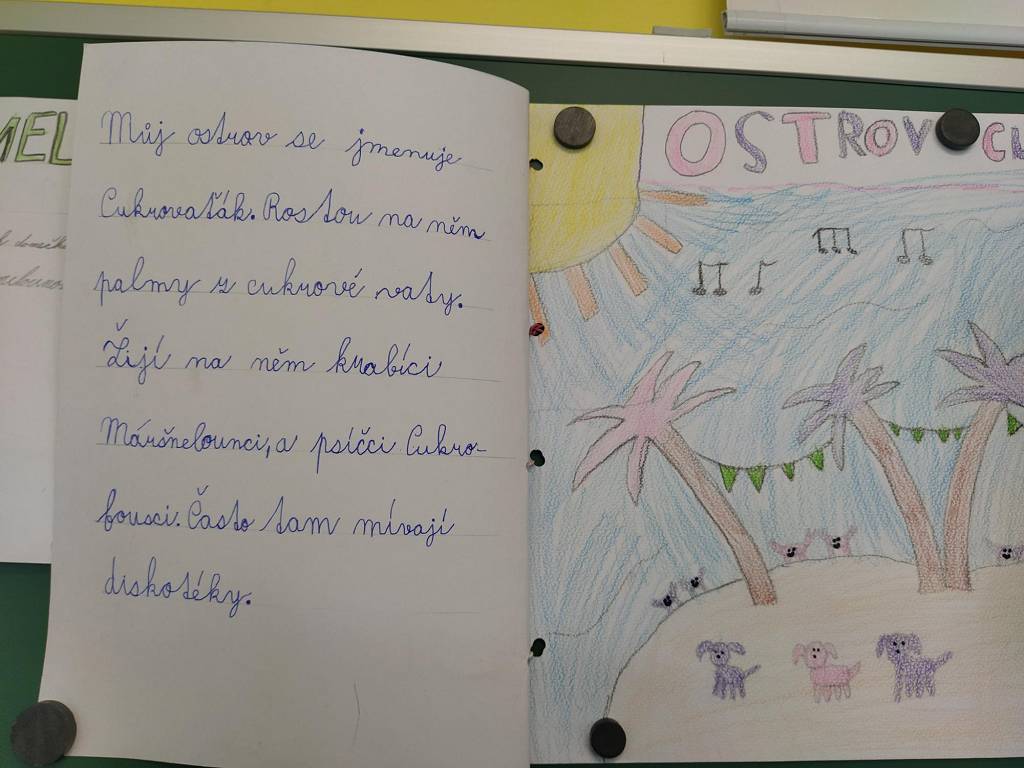 MEL
Můj ostrov se jmenuje
Cukrovaťák. Rostou na něm
palmy z cukrové vaty.
Žijí na něm krabíci
Máršnelounci, a psíčci Cukro-
fousci. Často tam mívají
diskotéky.
OSTROV CU